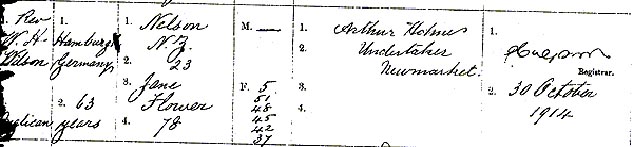 Rev
W. H.
Wilson
Anglican
1.
Hamburg
Germany
2. 63
years
1. Nelson
N. Z.
2. 23
3. Jane
Flower
4. 78
M. —
F. 5
51
48
45
42
37
1. Arthur Holmes
2. Undertaker
Newmarket.
3.
4.
1.
Registrar.
2. 30 October
1914